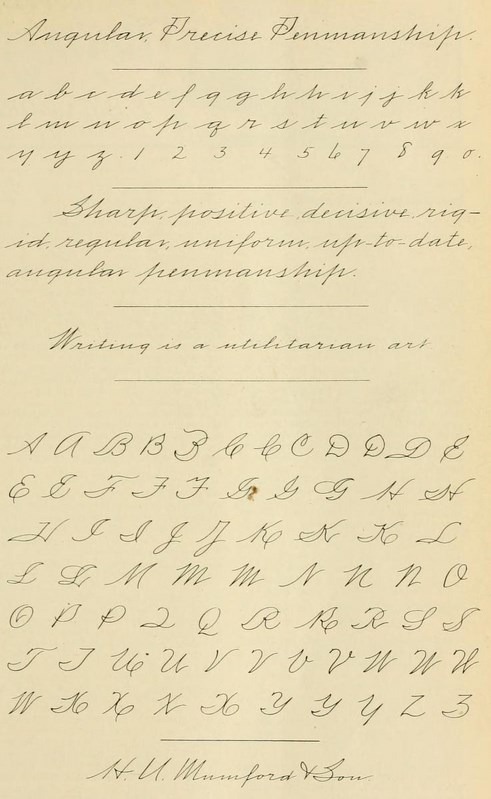 Angular, Precise Penmanship.
a b c d e f g g g h h i j j k k
l m n o p q r s t u v w x
y y y z. 1 2 3 4 5 6 7 8 9 0.
Sharp, positive, decisive, rig-
id, regular, uniform, up-to-date,
angular penmanship.
Writing is a utilitarian art
A A B B B C C C D D D E
E E F F F G G G H H
H I I J J K K K L
L L M M M N N N O
O P P Q Q R R R S S
T T U U V V V V W W W
W X X X X Y Y Y Z Z
H. U. Mumford & Son.